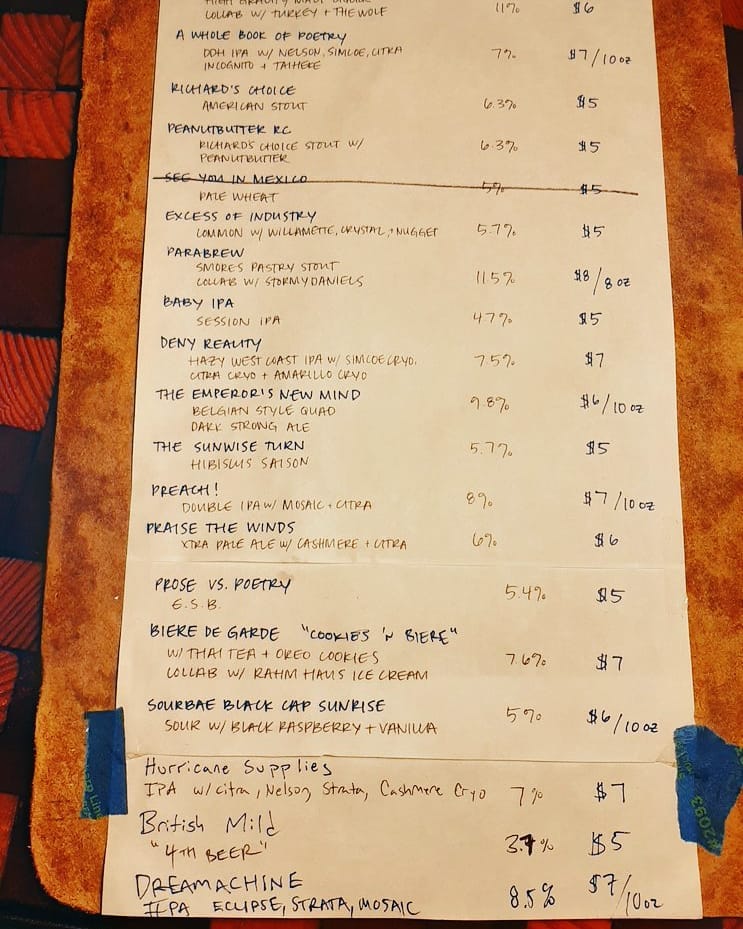 HIGH GRAVITY MALT LIQUOR
COLLAB W/ TURKEY + THE WOLF 11% $6
A WHOLE BOOK OF POETRY
DDH IPA W/ NELSON, SIMCOE, CITRA 7% $7/10oz
INCOGNITO + TAIHEKE
RICHARD'S CHOICE
AMERICAN STOUT 6.3% $5
PEANUTBUTTER RC
RICHARD'S CHOICE STOUT W/ 6.3% $5
PEANUTBUTTER
SEE YOU IN MEXICO
PALE WHEAT 5% $5
EXCESS OF INDUSTRY
COMMON W/ WILLAMETTE, CRYSTAL, + NUGGET 5.7% $5
PARABREW
SMORES PASTRY STOUT
COLLAB W/ STORMY DANIELS 11.5% $8/8oz
BABY IPA
SESSION IPA 4.7% $5
DENY REALITY
HAZY WEST COAST IPA W/ SIMCOE CRYO, 7.5% $7
CITRA CRYO + AMARILLO CRYO
THE EMPEROR'S NEW MIND
BELGIAN STYLE QUAD 9.8% $6/10oz
DARK STRONG ALE
THE SUNWISE TURN 5.7% $5
HIBISUS SAISON
PREACH!
DOUBLE IPA W/ MOSAIC + CITRA 8% $7/10oz
PRAISE THE WINDS
XTRA PALE ALE W/ CASHMERE + CITRA 6% $6
PROSE VS. POETRY
E.S.B. 5.4% $5
BIERE DE GARDE "COOKIES 'N BIERE"
W/ THAI TEA + OREO COOKIES 7.6% $7
COLLAB W/ RAHM HAUS ICE CREAM
SOURBAE BLACK CAP SUNRISE
SOUR W/ BLACK RASPBERRY + VANILLA 5% $6/10oz
Hurricane Supplies
IPA w/ citra, Nelson, Strata, Cashmere Cryo 7% $7
British Mild
"4TH BEER" 3.7% $5
DREAMACHINE
IIPA ECLIPSE, STRATA, MOSAIC 8.5% $7/10oz
#2093